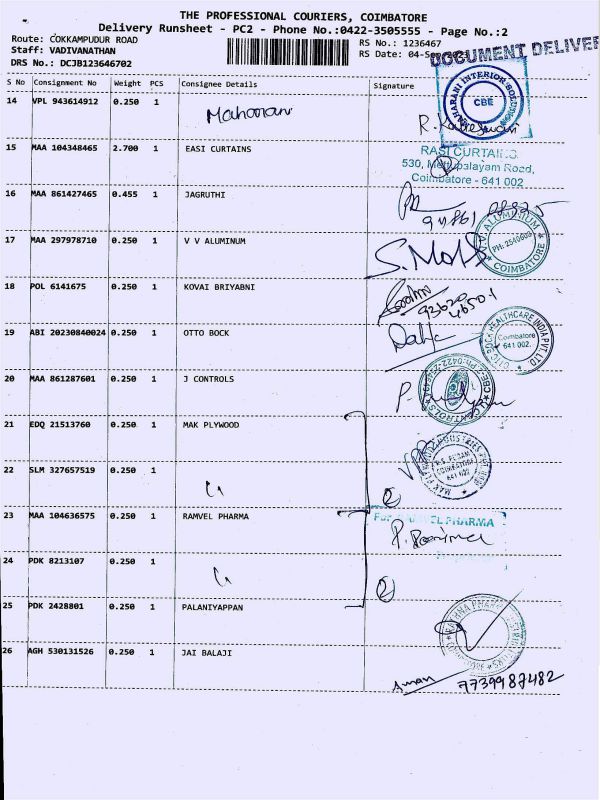 THE PROFESSIONAL COURIERS, COIMBATORE
Delivery Runsheet - PC2 - Phone No.:0422-3505555 - Page No.:2
Route: COKKAMPUDUR ROAD
RS No.: 1236467
DOCUMENT DELIVER
Staff: VADIVANATHAN
RS Date: 04-Se
DRS No.: DCJB123646702
S No Consignment No Weight PCS Consignee Details Signature
14 VPL 943614912 0.250 1
CBE
15 MAA 104348465 2.700 1 EASI CURTAINS
RASI CURTAINS
530, Mettupalayam Road,
Coimbatore - 641 002
16 MAA 861427465 0.455 1 JAGRUTHI
17 MAA 297978710 0.250 1 V V ALUMINUM
V.V. ALUMINIUM
PH: 2540603
COIMBATORE
18 POL 6141675 0.250 1 KOVAI BRIYABNI
93620
46501
19 ABI 20230840024 0.250 1 OTTO BOCK
OTTO BOCK HEALTHCARE INDIA PVT. LTD.
Coimbatore
641 002.
20 MAA 861287601 0.250 1 J CONTROLS
21 EDQ 21513760 0.250 1 MAK PLYWOOD
22 SLM 327657519 0.250 1
23 MAA 104636575 0.250 1 RAMVEL PHARMA
For RAMVEL PHARMA
24 PDK 8213107 0.250 1
25 PDK 2428801 0.250 1 PALANIYAPPAN
26 AGH 530131526 0.250 1 JAI BALAJI
Aman 7739987482